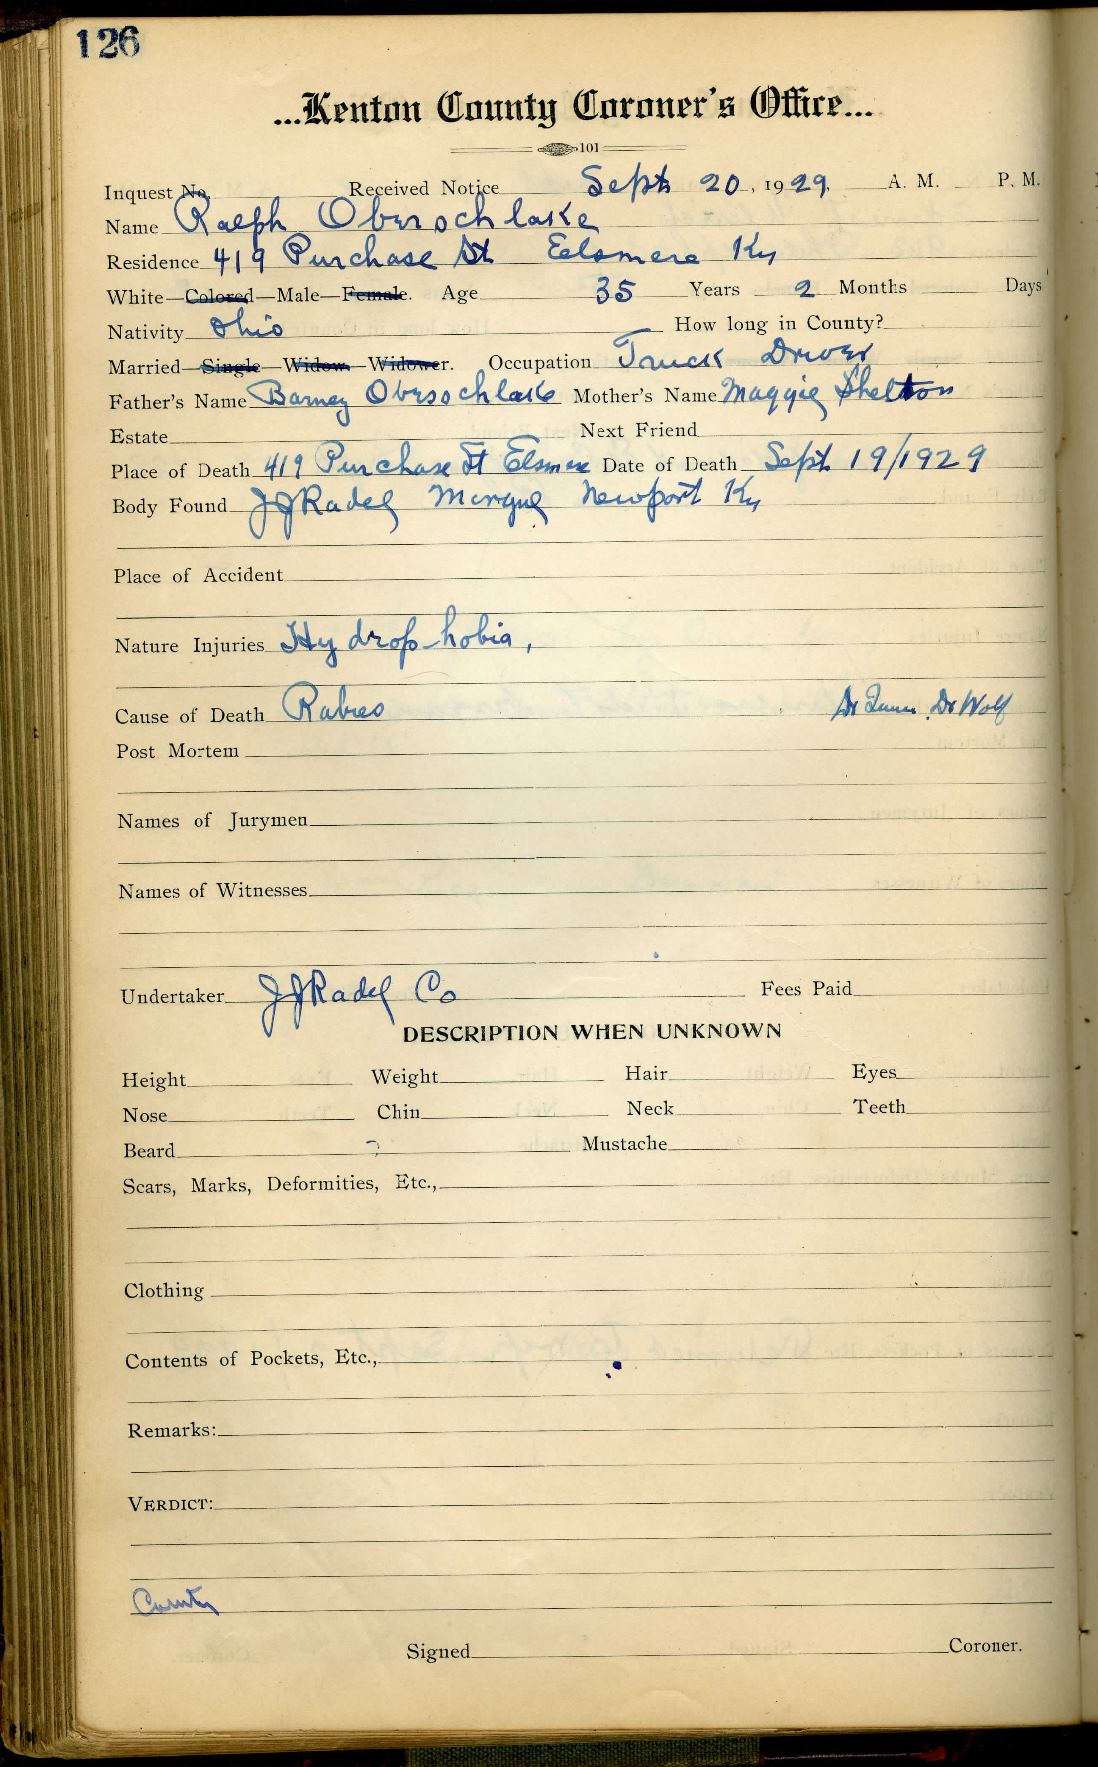 126
...Kenton County Coroner's Office...
101
Inquest No. Received Notice Sept 20, 1929, A. M. P. M.
Name Ralph Oberschlake
Residence 419 Purchase St Eelsmere Ky
White—Colored—Male—Female. Age 35 Years 2 Months Days
Nativity Ohio How long in County?
Married—Single—Widow—Widower. Occupation Truck Driver
Father's Name Barney Obersochlake Mother's Name Maggie Shelton
Estate Next Friend
Place of Death 419 Purchase St Elsmere Date of Death Sept 19/1929
Body Found JJ Radel Morgue Newport Ky
Place of Accident
Nature Injuries Hydrophobia,
Cause of Death Rabies Dr Dr Wolf
Post Mortem
Names of Jurymen
Names of Witnesses
Undertaker JJ Radel Co Fees Paid
DESCRIPTION WHEN UNKNOWN
Height Weight Hair Eyes
Nose Chin Neck Teeth
Beard Mustache
Scars, Marks, Deformities, Etc.,
Clothing
Contents of Pockets, Etc.,
Remarks:
VERDICT:
County
Signed Coroner.